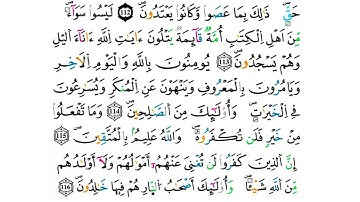 حَقٍّ ۚ ذَٰلِكَ بِمَا عَصَوا۟ وَّكَانُوا۟ يَعْتَدُونَ ﴿١١٢﴾ لَيْسُوا۟ سَوَآءً ۗ
مِّنْ أَهْلِ ٱلْكِتَٰبِ أُمَّةٌ قَآئِمَةٌ يَتْلُونَ ءَايَٰتِ ٱللَّهِ ءَانَآءَ ٱلَّيْلِ
وَهُمْ يَسْجُدُونَ ﴿١١٣﴾ يُؤْمِنُونَ بِٱللَّهِ وَٱلْيَوْمِ ٱلْءَاخِرِ
وَيَأْمُرُونَ بِٱلْمَعْرُوفِ وَيَنْهَوْنَ عَنِ ٱلْمُنكَرِ وَيُسَٰرِعُونَ
فِى ٱلْخَيْرَٰتِ وَأُو۟لَٰٓئِكَ مِنَ ٱلصَّٰلِحِينَ ﴿١١٤﴾ وَمَا تَفْعَلُوا۟
مِنْ خَيْرٍ فَلَن تُكْفَرُوهُ ۗ وَٱللَّهُ عَلِيمٌۢ بِٱلْمُتَّقِينَ ﴿١١٥﴾
إِنَّ ٱلَّذِينَ كَفَرُوا۟ لَن تُغْنِىَ عَنْهُمْ أَمْوَٰلُهُمْ وَلَآ أَوْلَٰدُهُم
مِّنَ ٱللَّهِ شَيْـًٔا ۖ وَأُو۟لَٰٓئِكَ أَصْحَٰبُ ٱلنَّارِ ۚ هُمْ فِيهَا خَٰلِدُونَ ﴿١١٦﴾